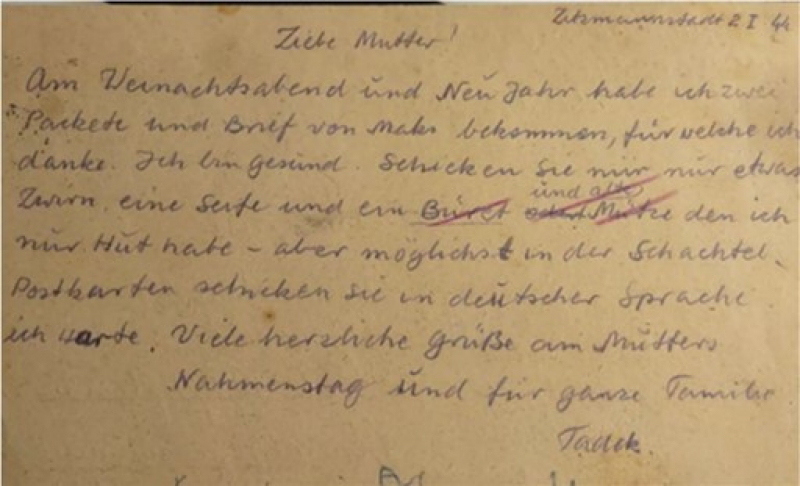 Litzmannstadt 2 I 44
Liebe Mutter!
Am Weinachtsabend und Neu Jahr habe ich zwei
Packete und Brief von Maks bekommen, für welche ich
danke. Ich bin gesund. Schicken Sie mir nur etwas
Zwirn, eine Seife und ein Bürst und alte Mütze den ich
nur Hut habe – aber möglichst in der Schachtel.
Postkarten schicken Sie in deutscher Sprache
ich warte. Viele herzliche Grüße am Mutters
Nahmenstag und für ganze Familie
Tadek.